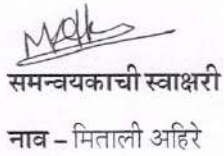 समन्वयकाची स्वाक्षरी
नाव – मिताली अहिरे